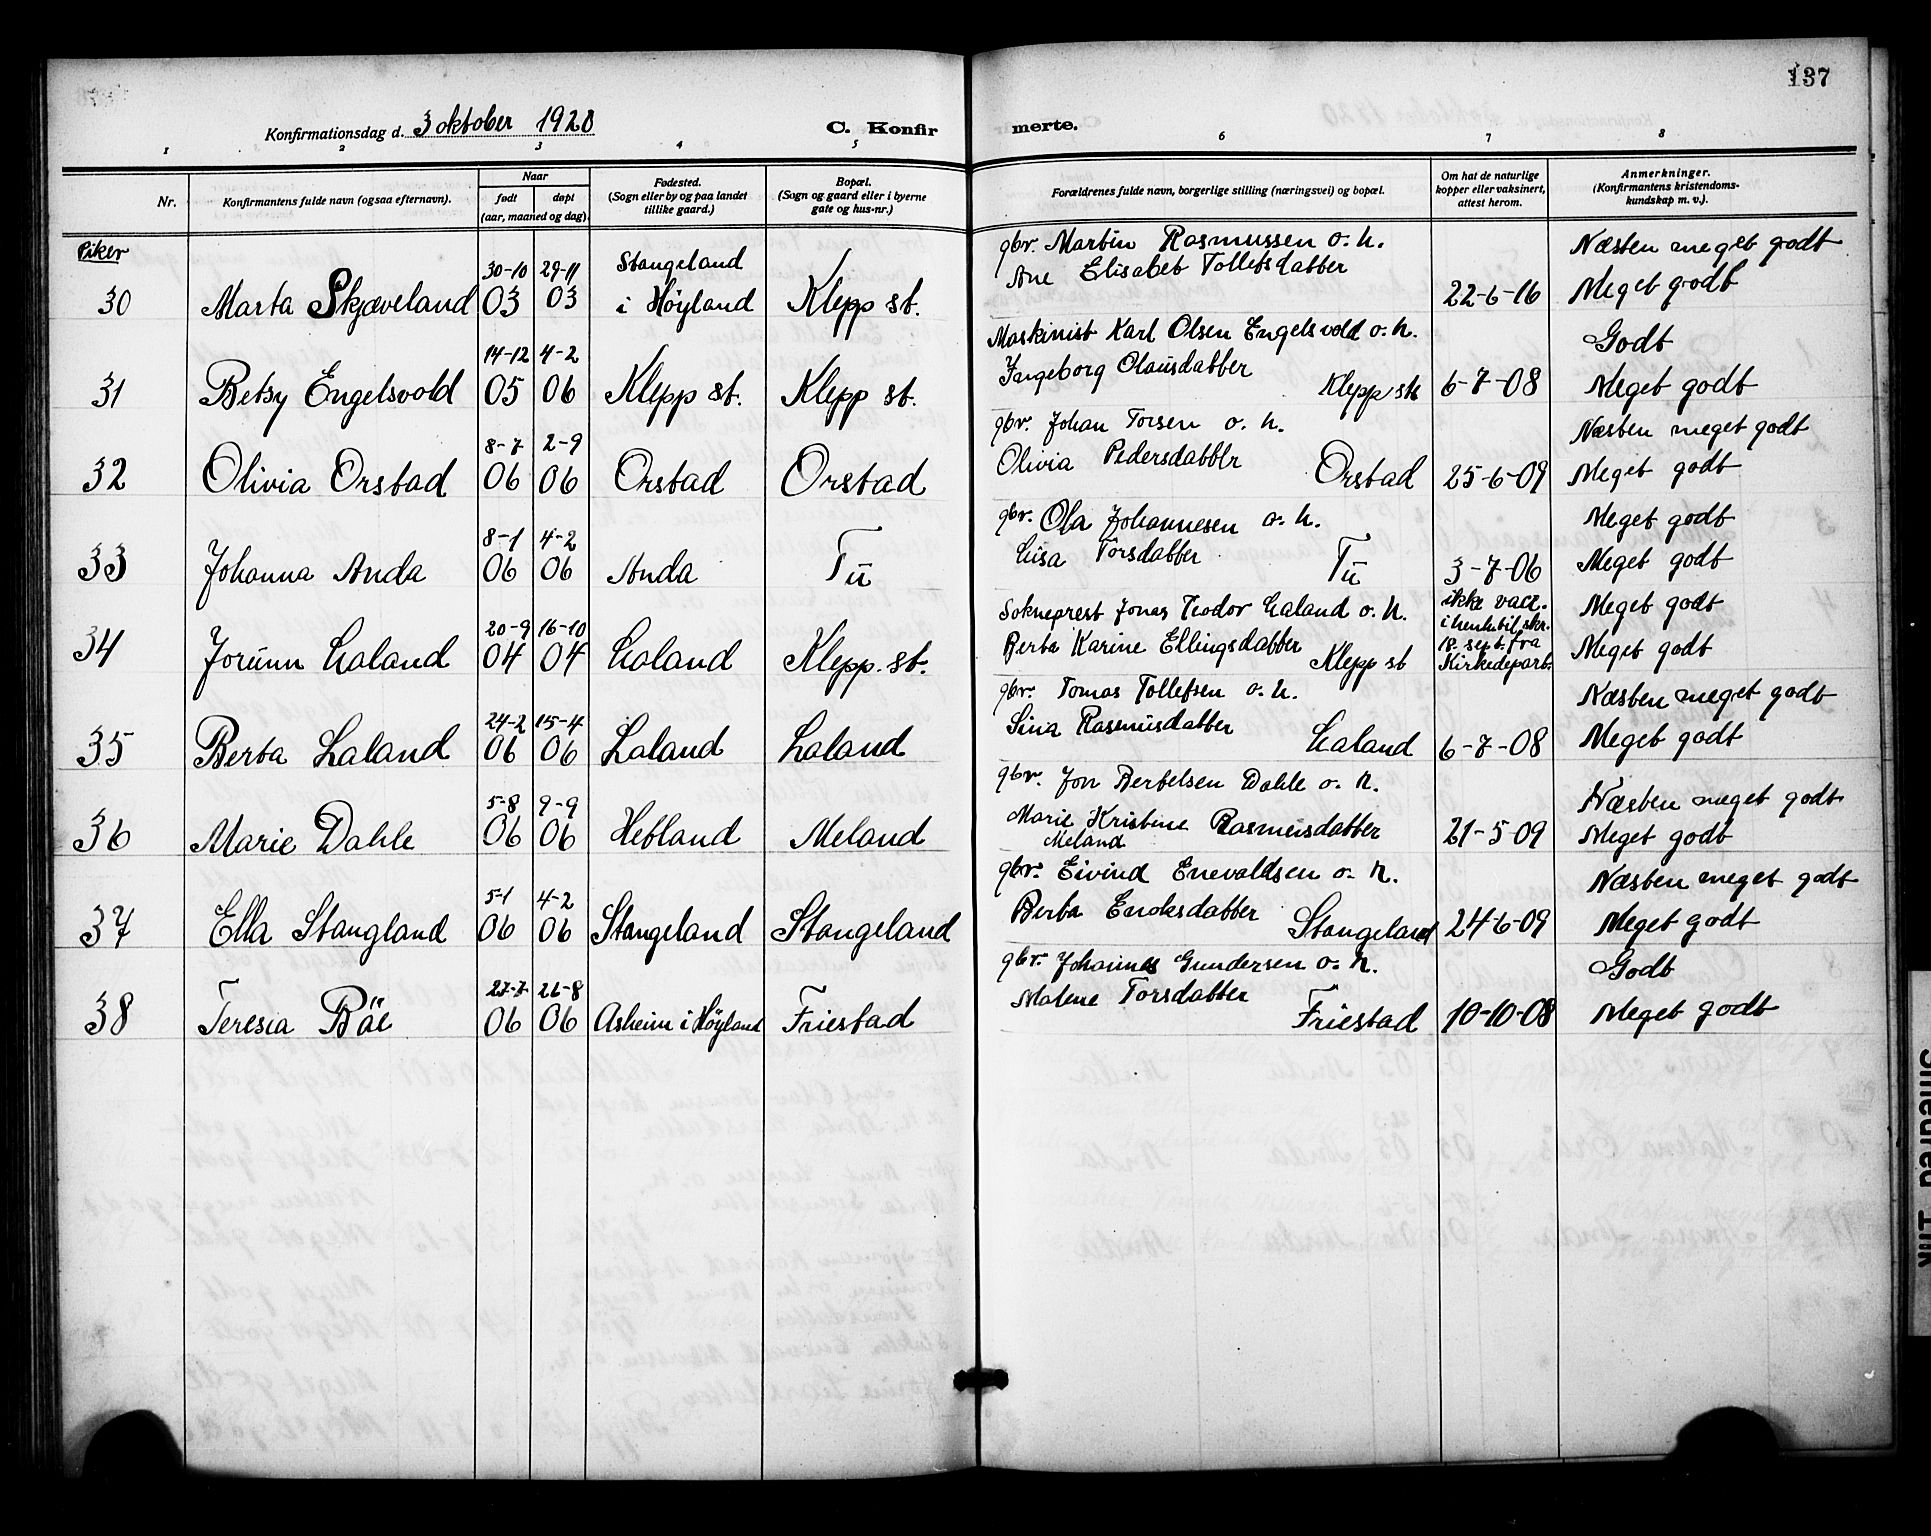 137
Konfirmationsdag d. 3 oktober 1920
C. Konfirmerte.
1 2 3 4 5 6 7 8
Nr.
Konfirmantens fulde navn (ogsaa efternavn).
Naar
født døpt
(aar, maaned og dag).
Fødested.
(Sogn eller by og paa landet
tillike gaard.)
Bopæl.
(Sogn og gaard eller i byerne
gate og hus-nr.)
Forældrenes fulde navn, borgerlige stilling (næringsvei) og bopæl.
Om hat de naturlige
kopper eller vaksinert,
attest herom.
Anmerkninger.
(Konfirmantens kristendoms-
kundskap m. v.).
Piker
30-10 29-11 Stangeland gbr. Martin Rasmussen o. h. Næsten meget godt
30 Marta Skjæveland 03 03 i Høyland Klepp st. Ane Elisabet Tollefsdatter 22-6-16 Meget godt
14-12 4-2 Maskinist Karl Olsen Engelsvold o. h. Godt
31 Betsy Engelsvold 05 06 Klepp st. Klepp st. Ingeborg Olausdatter Klepp st 6-7-08 Meget godt
8-7 2-9 gbr. Johan Torsen o. h. Næsten meget godt
32 Olivia Orstad 06 06 Orstad Orstad Olivia Pedersdatter Orstad 25-6-09 Meget godt
8-1 4-2 gbr. Ola Johannesen o. h. Meget godt
33 Johanna Anda 06 06 Anda Tu Lisa Torsdatter Tu 3-7-06 Meget godt
20-9 16-10 Sokneprest Jonas Teodor Laland o. h. ikke vacc. Meget godt
i henh. til skr.
18. sept. fra
34 Jorunn Laland 04 04 Laland Klepp. st. Berta Karine Ellingsdatter Klepp st Kirkedepart. Meget godt
24-2 15-4 gbr. Tomas Tollefsen o. h. Næsten meget godt
35 Berta Laland 06 06 Laland Laland Sina Rasmusdatter Laland 6-7-08 Meget godt
5-8 9-9 gbr. Jon Bertelsen Dahle o. h. Næsten meget godt
36 Marie Dahle 06 06 Hetland Meland Marie Kristine Rasmusdatter 21-5-09 Meget godt
Meland
5-1 4-2 gbr. Eivind Enevaldsen o. h. Næsten meget godt
37 Ella Stangland 06 06 Stangeland Stangeland Berta Enoksdatter Stangeland 24-6-09 Meget godt
27-7 26-8 gbr. Johannes Gundersen o. h. Godt
38 Teresia Bøe 06 06 Asheim i Høyland Friestad Malene Torsdatter Friestad 10-10-08 Meget godt